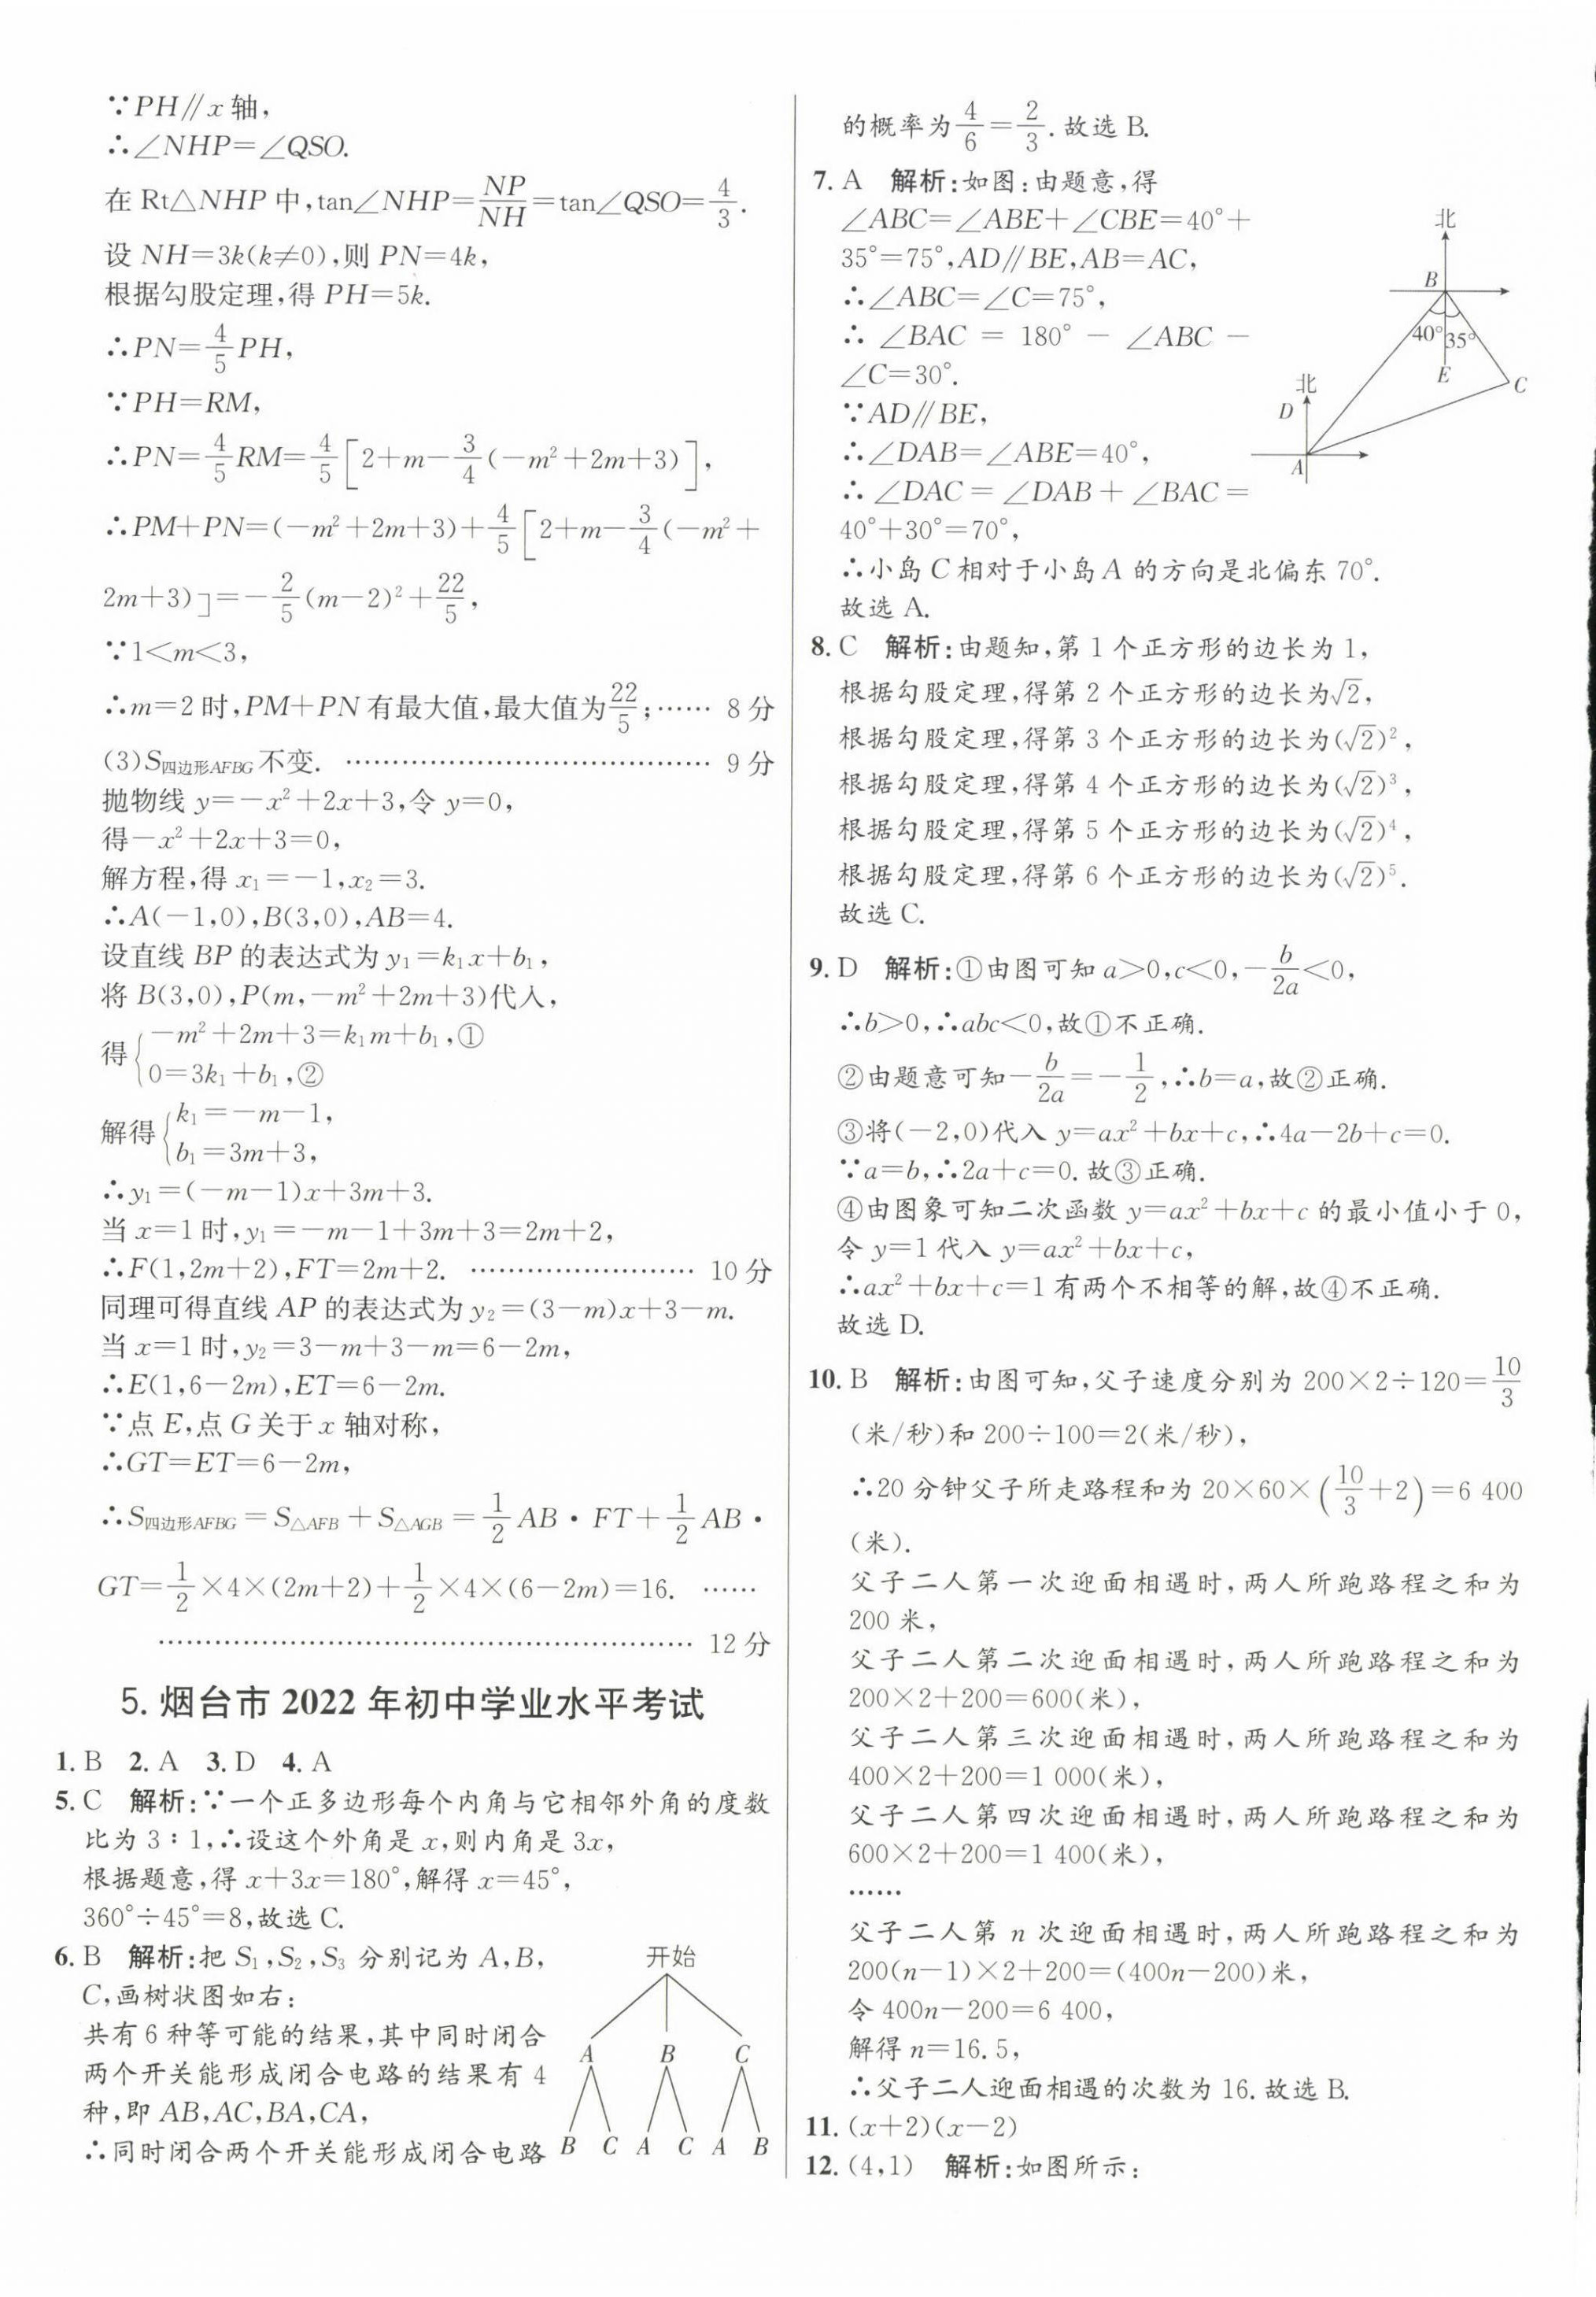 ∵PH∥x轴,
∴∠NHP=∠QSO.
在 Rt△NHP 中,tan∠NHP=NP/NH=tan∠QSO=4/3.
设 NH=3k(k≠0),则 PN=4k,
根据勾股定理,得 PH=5k.
∴PN=4/5PH,
∵PH=RM,
∴PN=4/5RM=4/5[2+m-3/4(-m²+2m+3)],
∴PM+PN=(-m²+2m+3)+4/5[2+m-3/4(-m²+
2m+3)]=-2/5(m-2)²+22/5,
∵1<m<3,
∴m=2时,PM+PN有最大值,最大值为22/5;…… 8分
(3)S四边形AFBG不变. …………………………………… 9分
抛物线 y=-x²+2x+3,令 y=0,
得-x²+2x+3=0,
解方程,得 x₁=-1,x₂=3.
∴A(-1,0),B(3,0),AB=4.
设直线 BP 的表达式为 y₁=k₁x+b₁,
将 B(3,0),P(m,-m²+2m+3)代入,
得{-m²+2m+3=k₁m+b₁,①
0=3k₁+b₁,②
解得{k₁=-m-1,
b₁=3m+3,
∴y₁=(-m-1)x+3m+3.
当 x=1时,y₁=-m-1+3m+3=2m+2,
∴F(1,2m+2),FT=2m+2. …………………… 10分
同理可得直线 AP 的表达式为 y₂=(3-m)x+3-m.
当 x=1时,y₂=3-m+3-m=6-2m,
∴E(1,6-2m),ET=6-2m.
∵点 E,点 G 关于 x 轴对称,
∴GT=ET=6-2m,
∴S四边形AFBG=S△AFB+S△AGB=1/2AB·FT+1/2AB·
GT=1/2×4×(2m+2)+1/2×4×(6-2m)=16. ……
………………………………………………… 12分
5. 烟台市 2022 年初中学业水平考试
1. B 2. A 3. D 4. A
5. C 解析:∵一个正多边形每个内角与它相邻外角的度数
比为 3∶1,∴设这个外角是 x,则内角是 3x,
根据题意,得 x+3x=180°,解得 x=45°,
360°÷45°=8,故选 C.
6. B 解析:把 S₁,S₂,S₃ 分别记为 A,B,
C,画树状图如右:
共有 6 种等可能的结果,其中同时闭合
两个开关能形成闭合电路的结果有 4
种,即 AB,AC,BA,CA,
∴同时闭合两个开关能形成闭合电路
开始
A B C
B C A C A B
的概率为4/6=2/3.故选 B.
7. A 解析:如图:由题意,得
∠ABC=∠ABE+∠CBE=40°+
35°=75°,AD∥BE,AB=AC,
∴∠ABC=∠C=75°,
∴ ∠BAC = 180° - ∠ABC -
∠C=30°.
∵AD∥BE,
∴∠DAB=∠ABE=40°,
∴ ∠DAC = ∠DAB + ∠BAC =
40°+30°=70°,
∴小岛 C 相对于小岛 A 的方向是北偏东 70°.
故选 A.
北
B
40° 35°
E
C
北
D
A
8. C 解析:由题知,第 1 个正方形的边长为 1,
根据勾股定理,得第 2 个正方形的边长为√2,
根据勾股定理,得第 3 个正方形的边长为(√2)²,
根据勾股定理,得第 4 个正方形的边长为(√2)³,
根据勾股定理,得第 5 个正方形的边长为(√2)⁴,
根据勾股定理,得第 6 个正方形的边长为(√2)⁵.
故选 C.
9. D 解析:①由图可知 a>0,c<0,-b/2a<0,
∴b>0,∴abc<0,故①不正确.
②由题意可知-b/2a=-1/2,∴b=a,故②正确.
③将(-2,0)代入 y=ax²+bx+c,∴4a-2b+c=0.
∵a=b,∴2a+c=0.故③正确.
④由图象可知二次函数 y=ax²+bx+c 的最小值小于 0,
令 y=1 代入 y=ax²+bx+c,
∴ax²+bx+c=1 有两个不相等的解,故④不正确.
故选 D.
10. B 解析:由图可知,父子速度分别为 200×2÷120=10/3
(米/秒)和 200÷100=2(米/秒),
∴20 分钟父子所走路程和为 20×60×(10/3+2)=6 400
(米).
父子二人第一次迎面相遇时,两人所跑路程之和为
200 米,
父子二人第二次迎面相遇时,两人所跑路程之和为
200×2+200=600(米),
父子二人第三次迎面相遇时,两人所跑路程之和为
400×2+200=1 000(米),
父子二人第四次迎面相遇时,两人所跑路程之和为
600×2+200=1 400(米),
……
父子二人第 n 次迎面相遇时,两人所跑路程之和为
200(n-1)×2+200=(400n-200)米,
令 400n-200=6 400,
解得 n=16.5,
∴父子二人迎面相遇的次数为 16.故选 B.
11. (x+2)(x-2)
12. (4,1) 解析:如图所示: